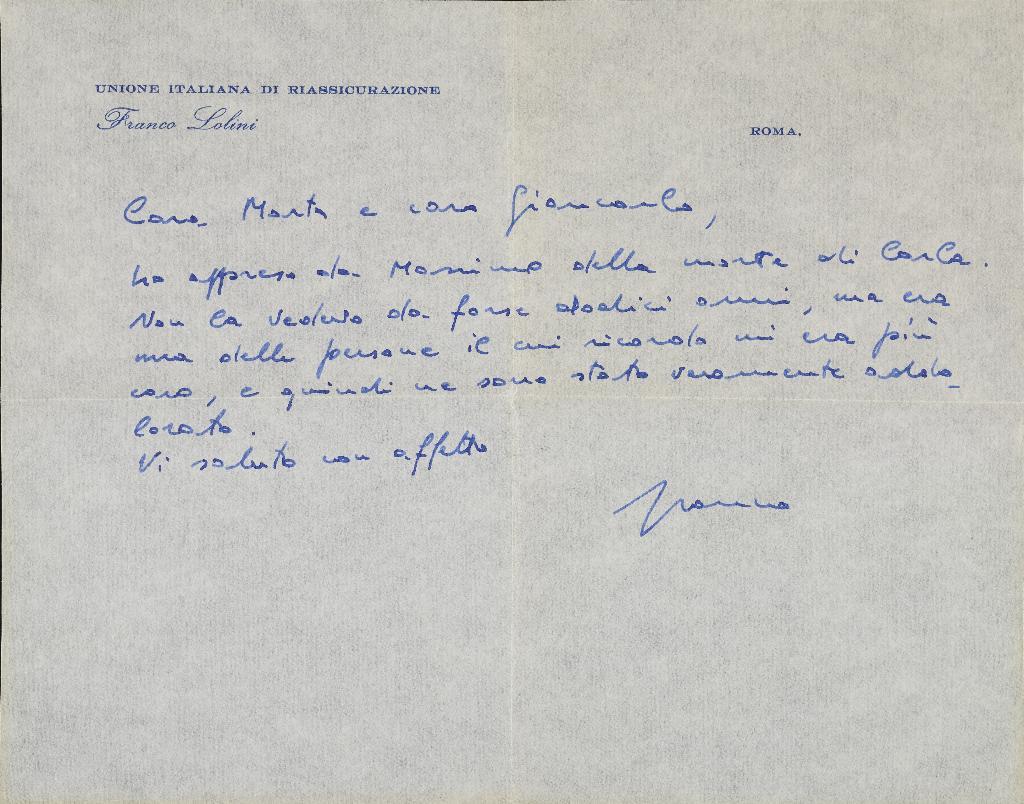 UNIONE ITALIANA DI RIASSICURAZIONE
Franco Lolini
ROMA,
Cara Marta e caro Giancarlo,
ho appreso da Massimo della morte di Carla.
Non la vedevo da forse dodici anni, ma era
una delle persone il cui ricordo mi era più
caro, e quindi ne sono stato veramente addo-
lorato.
Vi saluto con affetto
Franco